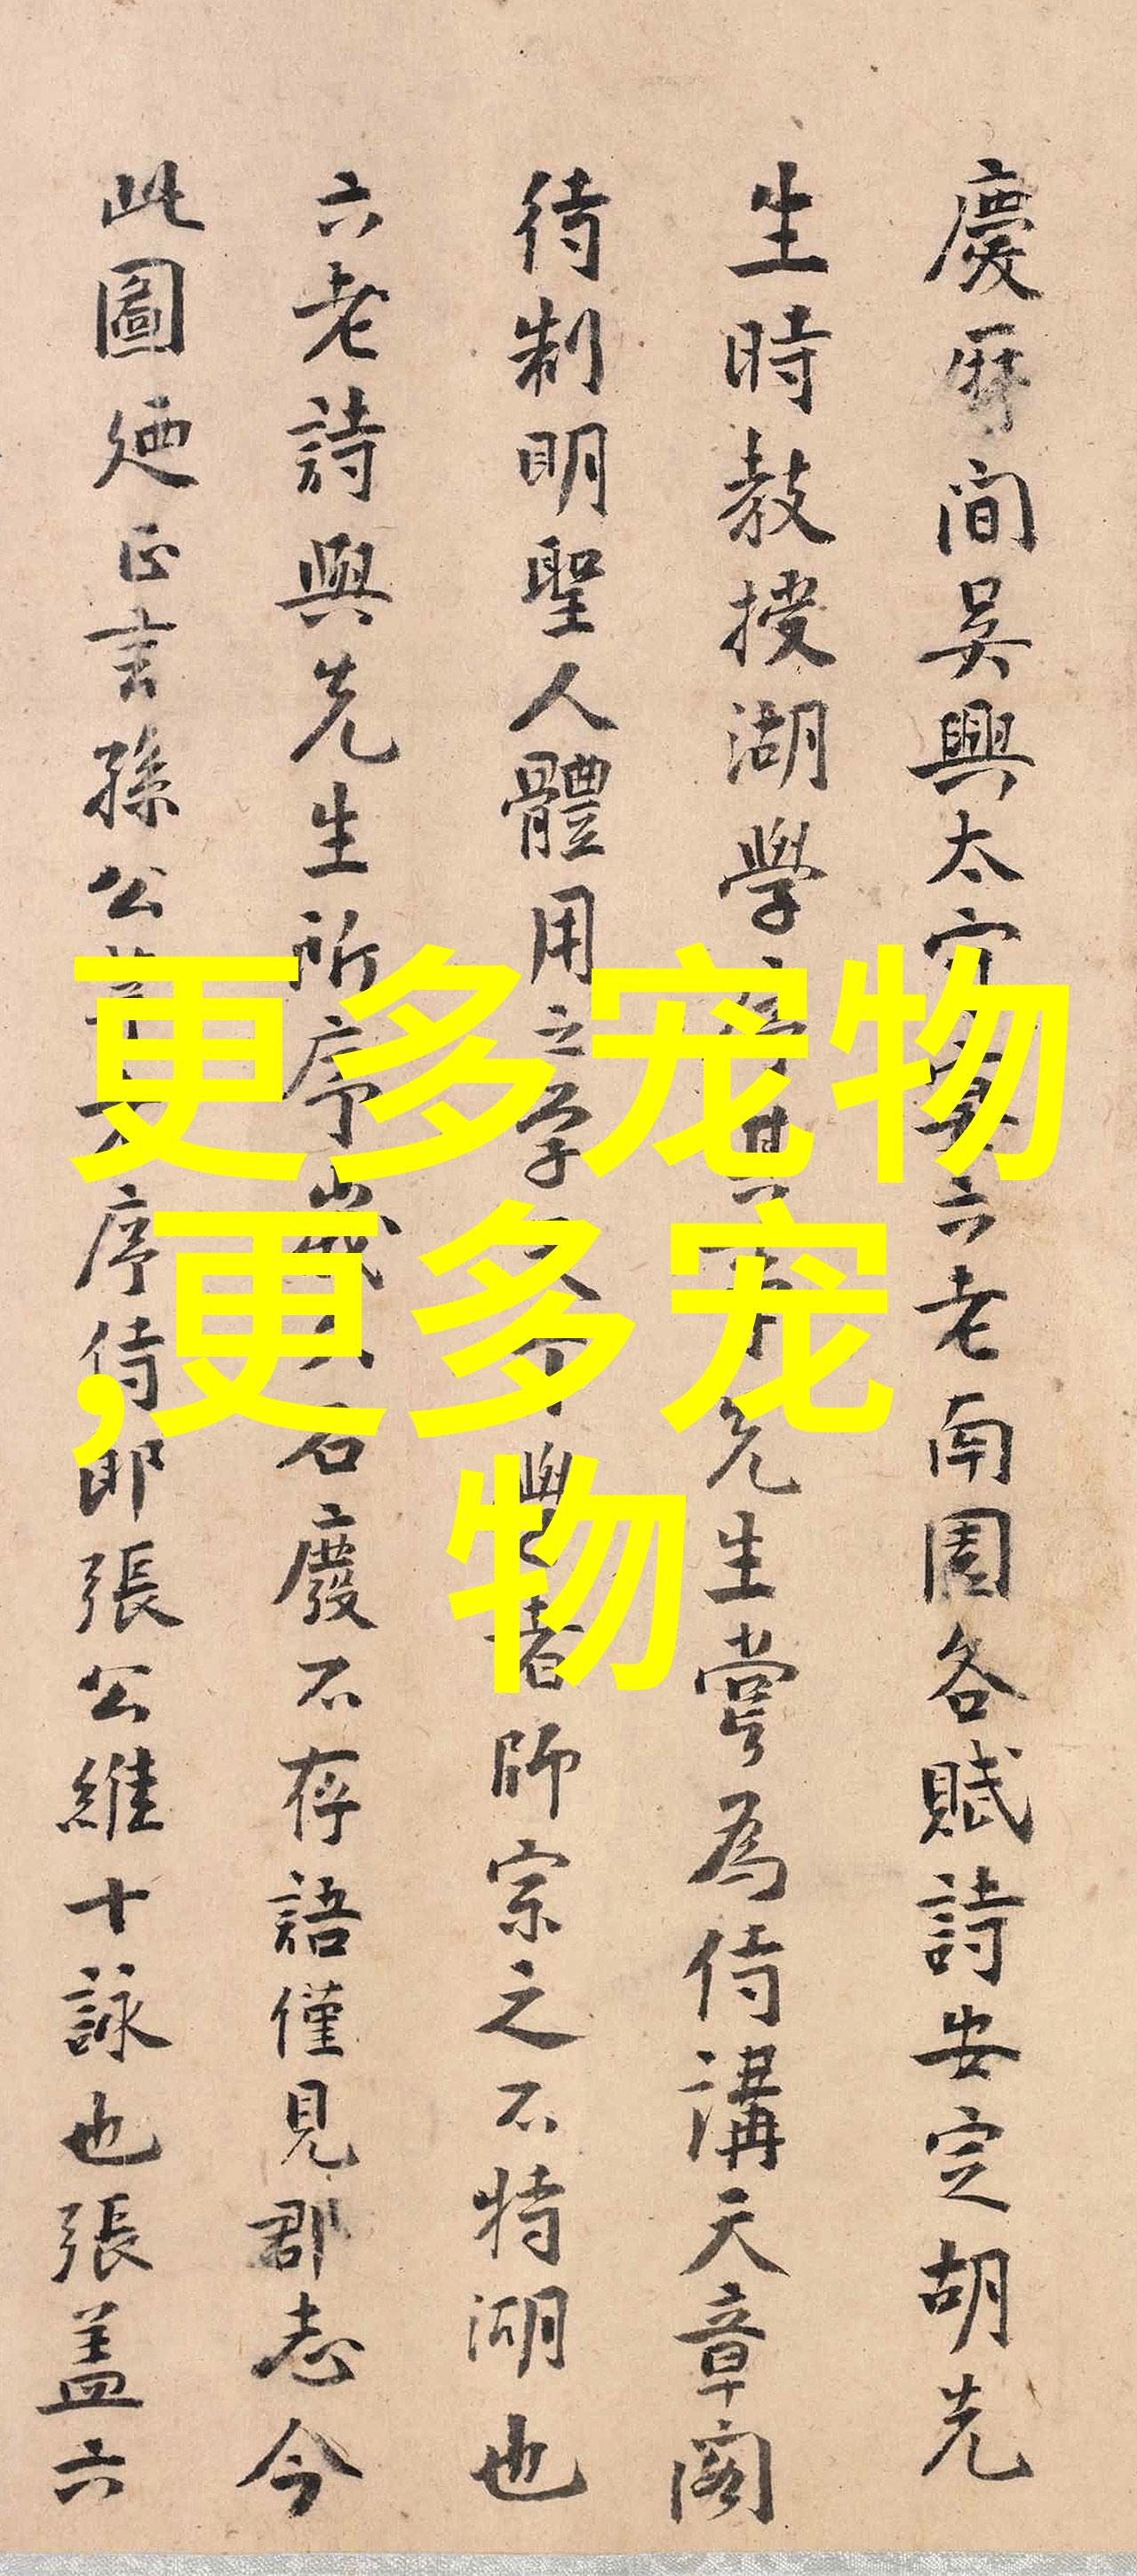 慶曆間吳興太守宴六老南園各賦詩安定胡先
生時教授湖學序其事先生嘗為侍講天章閣
待制明聖人體用之學天下學者師宗之不特湖也
六老詩與先生所序歲久石廢不存語僅見郡志今
此圖廼正言孫公莘老序侍郎張公維十詠也張蓋六
更多宠物
,更多宠
物